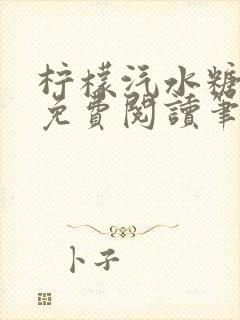 柠檬汽水糖
免費閱讀筆
卜子